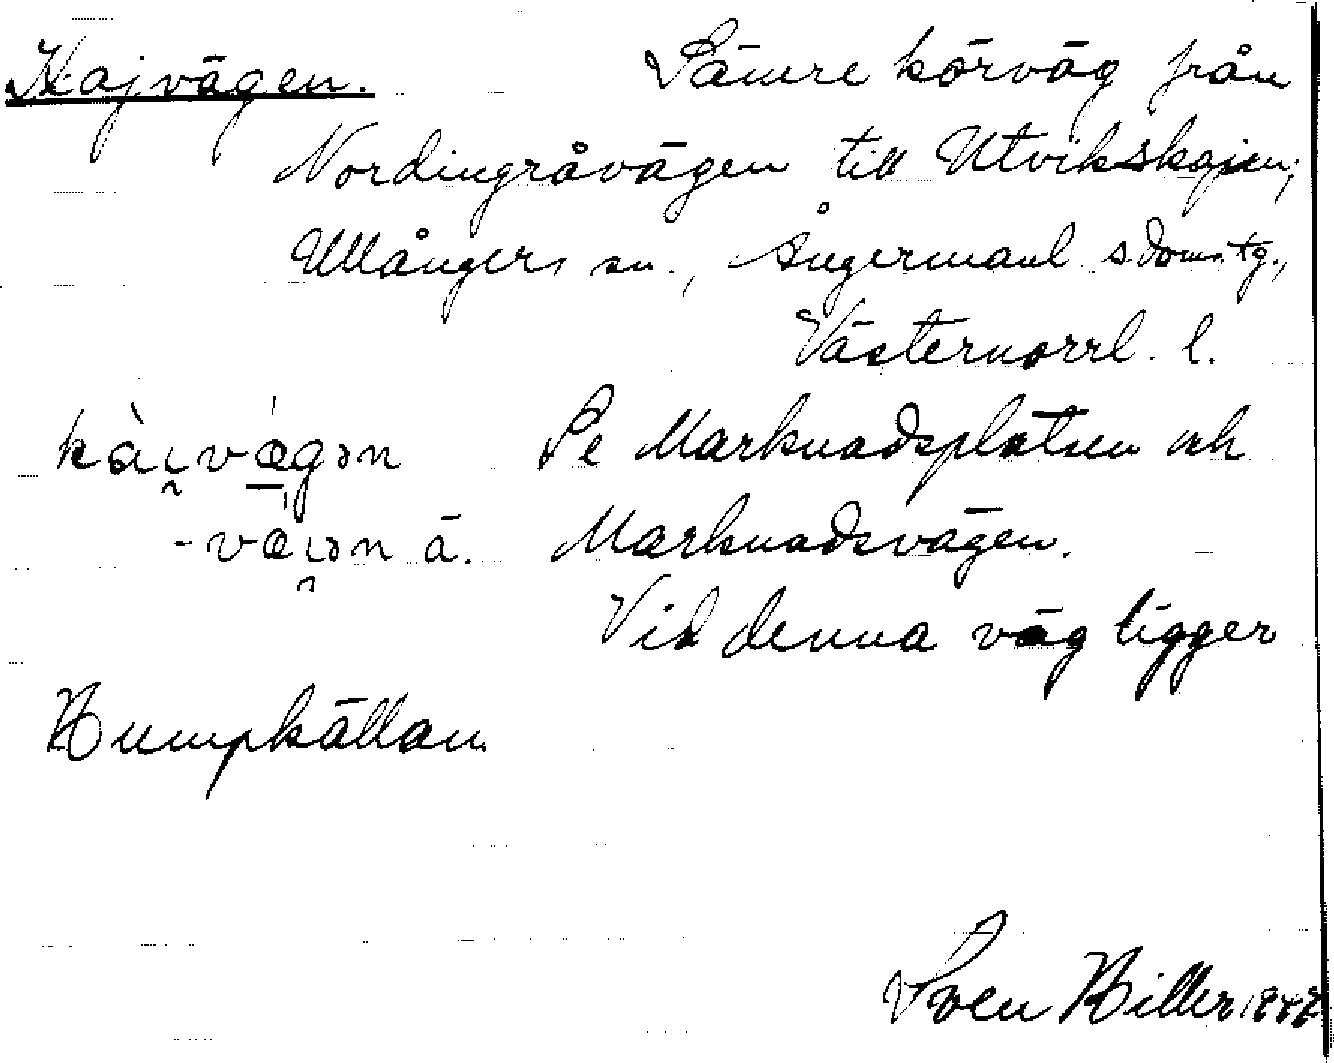 Kajvägen. Sämre körväg från
Nordingråvägen till Utvikskajen,
Ullångers sn., Ångermanl. s. doms. tg.,
Västernorrl. l.
kài̯vǽgən Se Marknadsplatsen och
-vǽi̯ən ä. Marknadsvägen.
Vid denna väg ligger
Bumpkällan.
Sven Hiller